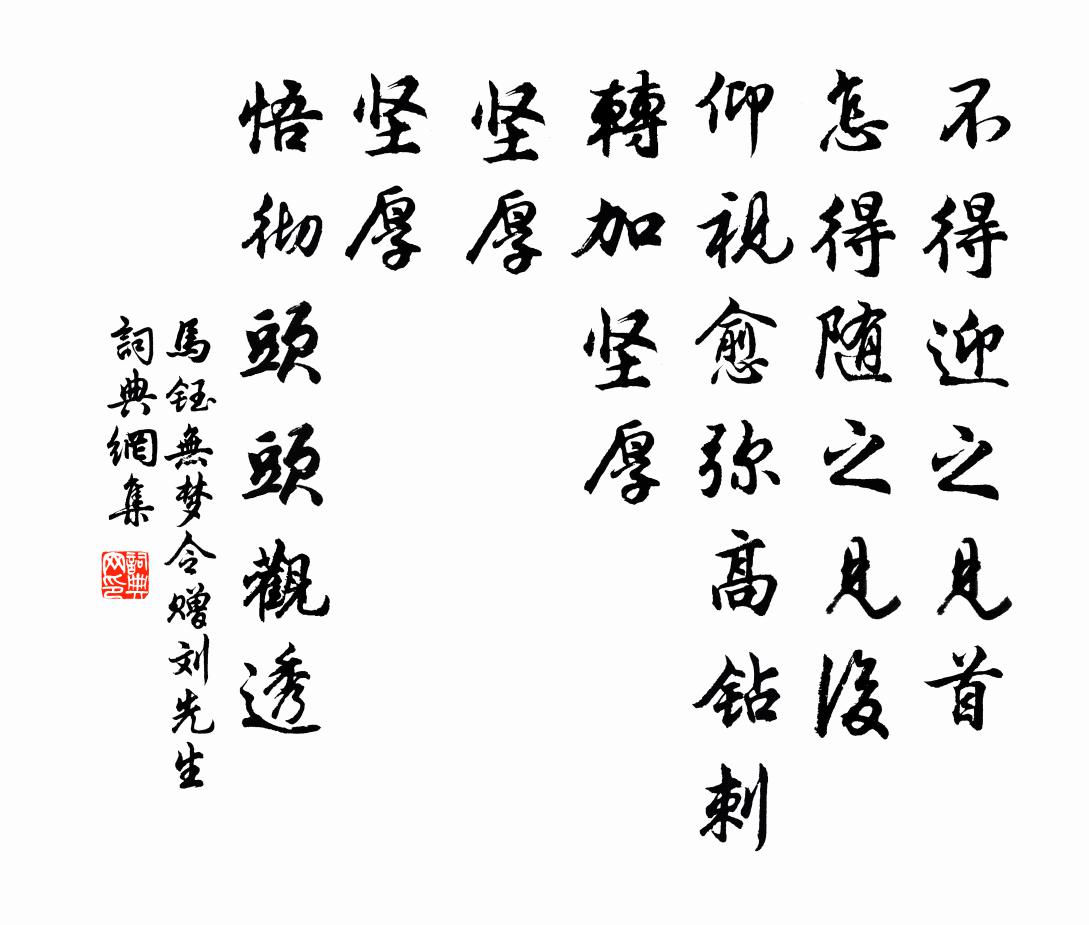 不得迎之見首
怎得随之見後
仰視愈弥高钻刺
轉加坚厚
坚厚
坚厚
悟彻頭頭觀透
馬钰無梦令赠刘先生
詞典網集
詞典网印